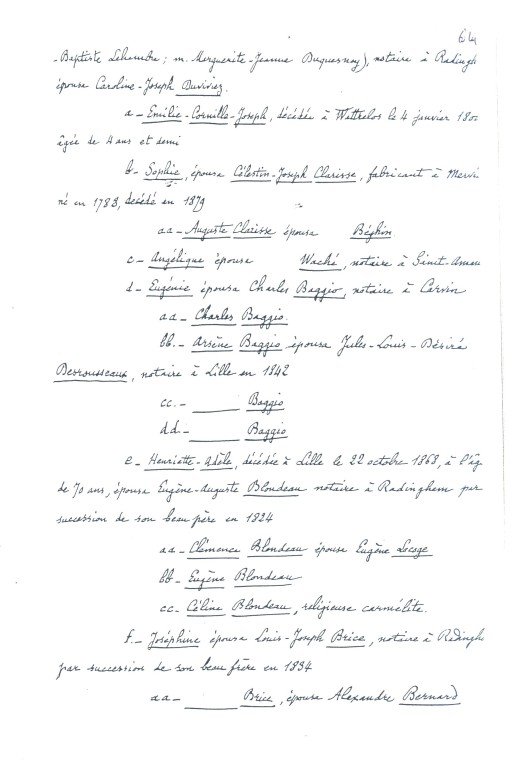 64
-Baptiste Lehembre ; m. Marguerite-Jeanne Duquesnoy), notaire à Radingh
épousa Caroline-Joseph Duvivier.
a - Emilie-Cornille-Joseph, décédée à Wattrelos le 4 janvier 180
âgée de 4 ans et demi
b - Sophie, épousa Célestin-Joseph Clarisse, fabricant à Mervi
né en 1783, décédé en 1879
aa - Auguste Clarisse épousa Béghin.
c - Angélique épousa Waché, notaire à Saint-Aman
d - Eugénie épousa Charles Baggio, notaire à Carvin
aa - Charles Baggio.
bb. - Arsène Baggio épousa Jules-Louis-Désiré
Desrousseaux, notaire à Lille en 1842
cc. - Baggio
dd. - Baggio
e - Henriette-Adèle, décédée à Lille le 22 octobre 1868, à l'âg
de 70 ans, épousa Eugène-Auguste Blondeau notaire à Radinghem par
succession de son beau père en 1824
aa - Clémence Blondeau épouse Eugène Lesage
bb - Eugène Blondeau
cc - Céline Blondeau, religieuse carmélite.
f. - Joséphine épousa Louis-Joseph Brice, notaire à Radingh
par succession de son beau frère en 1834
aa - Brice, épousa Alexandre Bernard